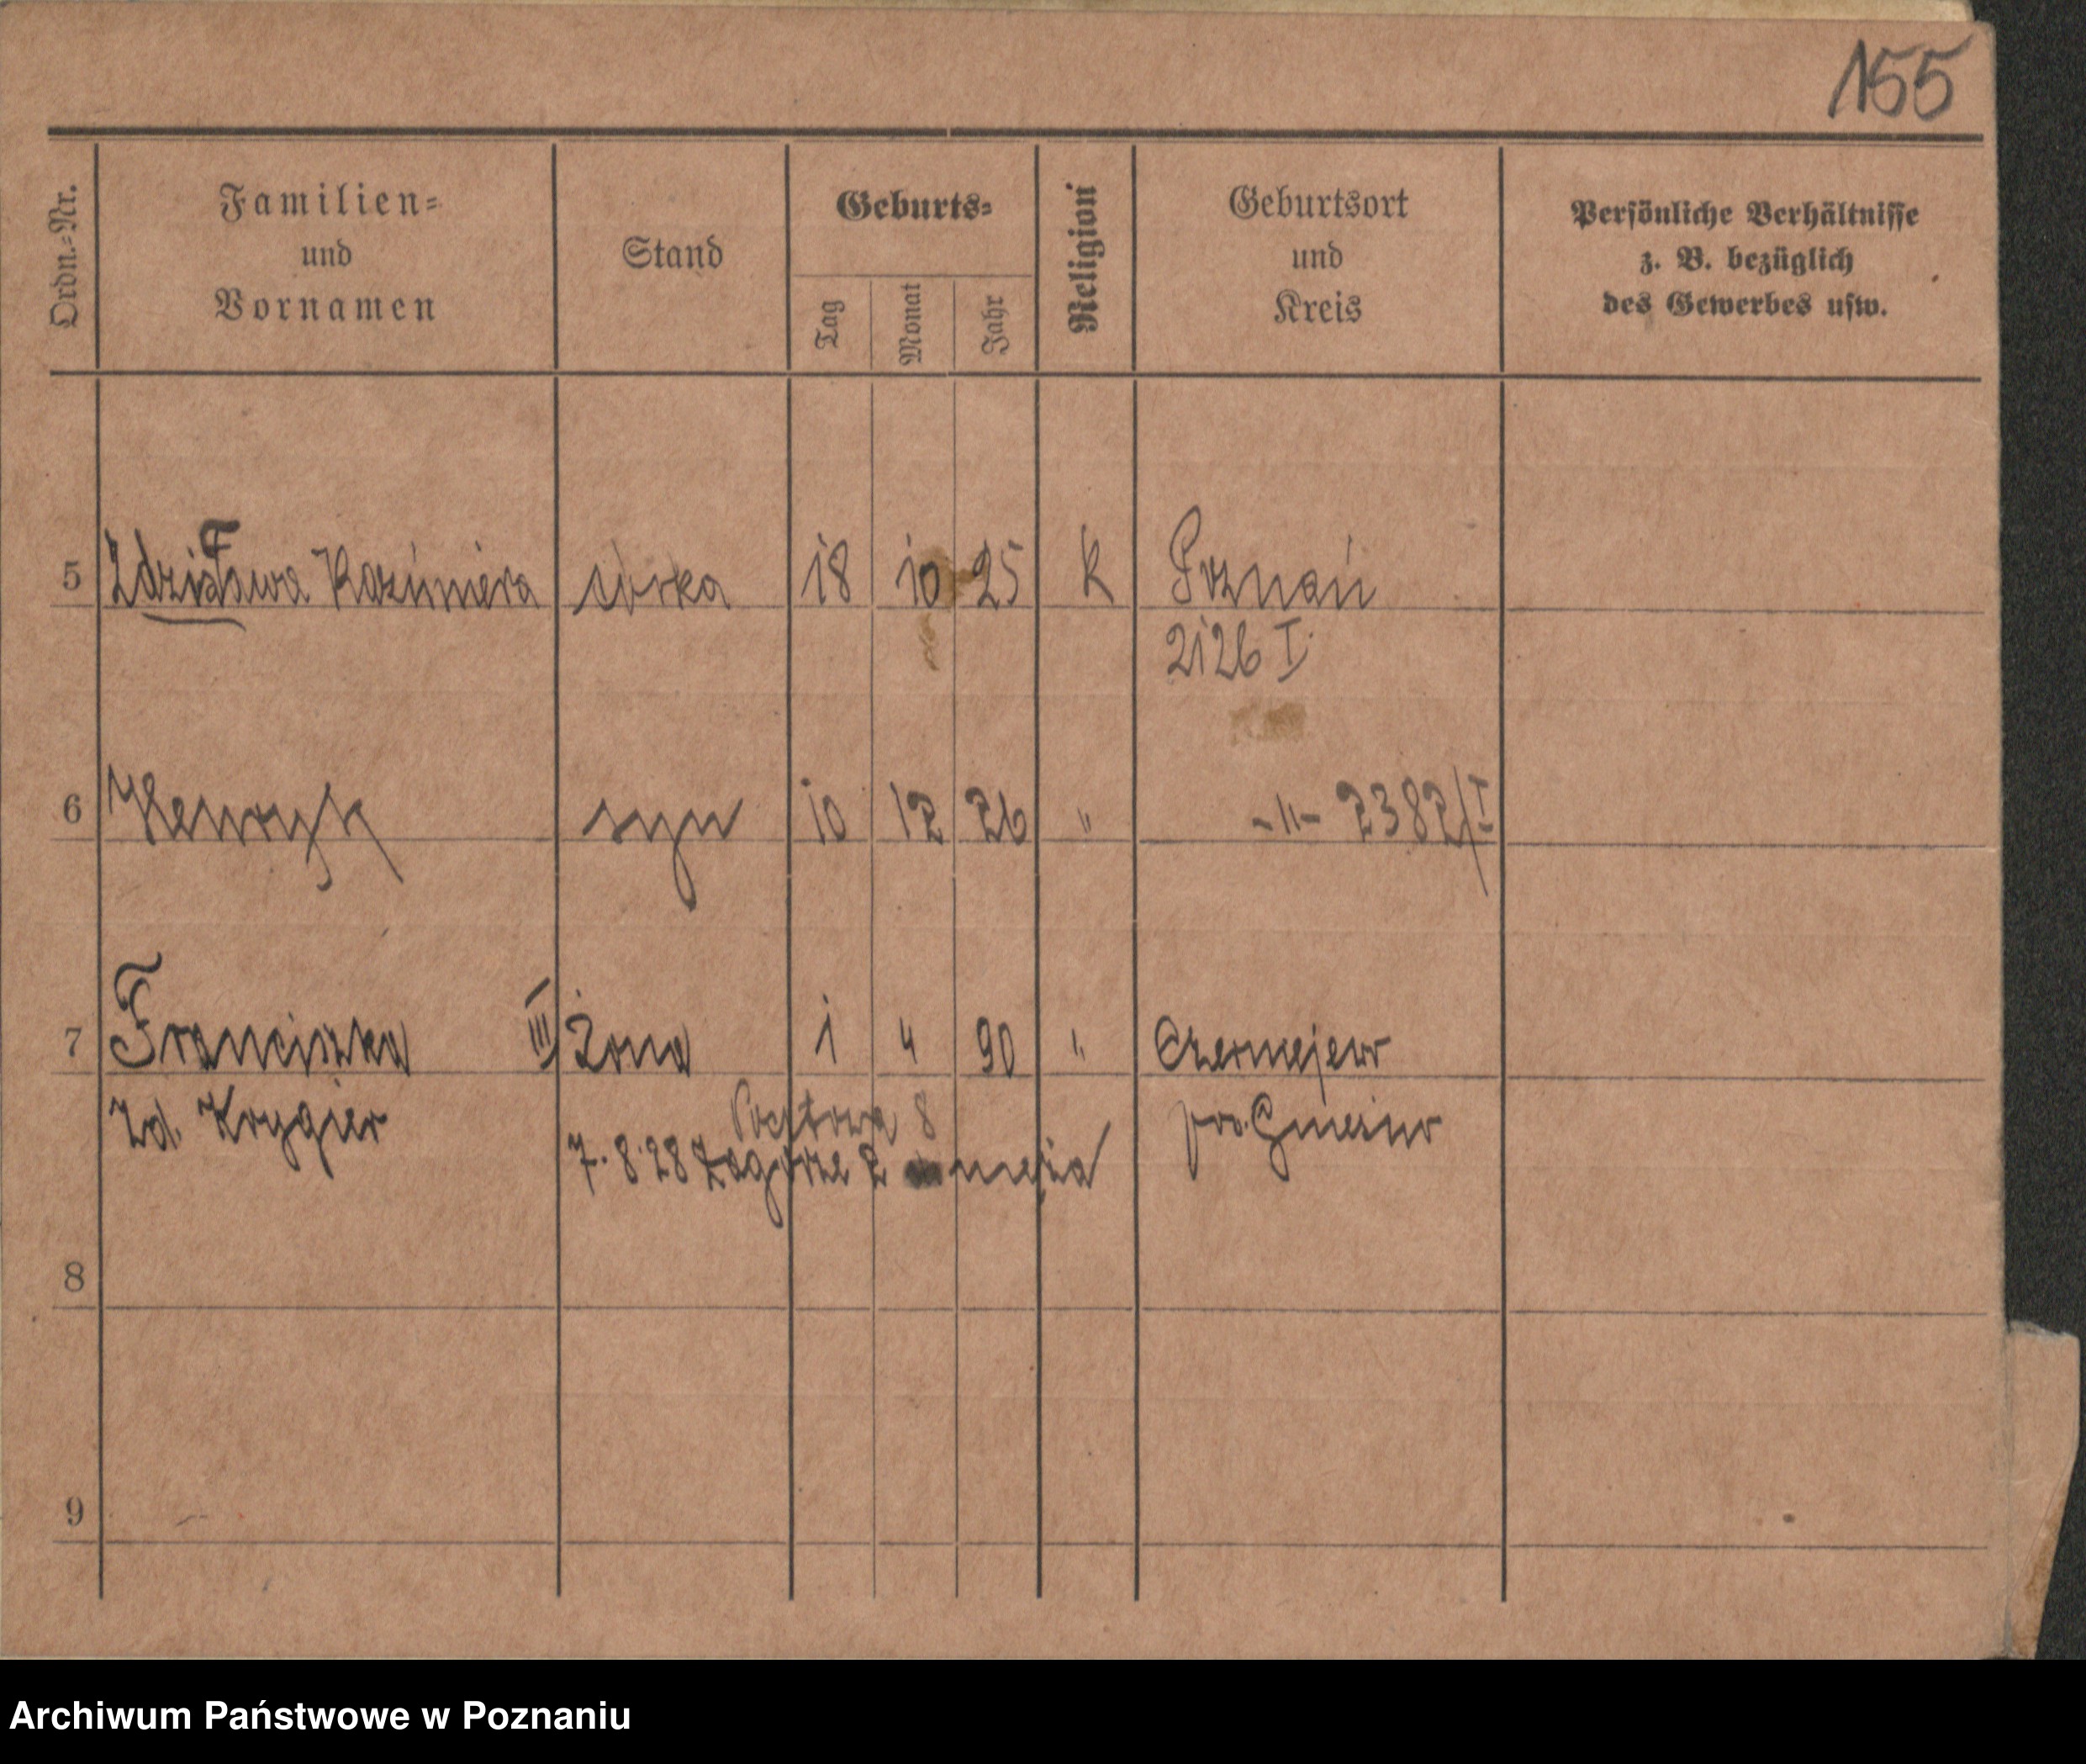 155
Ordn.-Nr.
Familien-
und
Vornamen
Stand
Geburts-
Tag
Monat
Jahr
Religion
Geburtsort
und
Kreis
Persönliche Verhältnisse
z. B. bezüglich
des Gewerbes usw.
5 Zdzisława Kazimiera córka 18 10 25 K Poznań
2126 I
6 Henryk syn 10 12 26 " -"- 2382/I
7 Franciszka III żona 1 4 90 " Czerniejewo
zd. Krygier Pocztowa 8 pow. Gniezno
7. 8. 28 Zagórze 2 męża
8
9
Archiwum Państwowe w Poznaniu